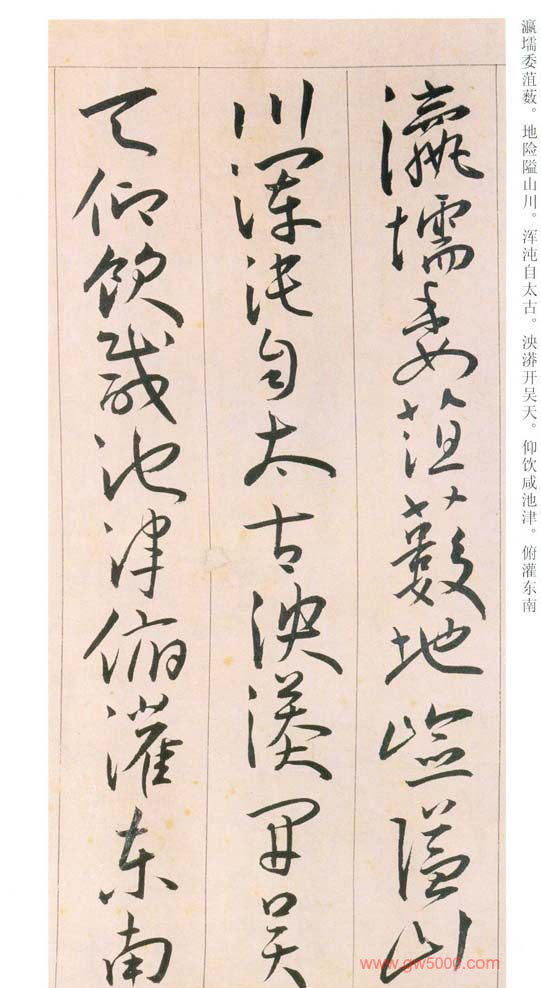 瀛壖委菹薮。地险隘山川。浑沌自太古。泱漭开吴天。仰饮咸池津。俯灌东南
瀛壖委菹藪地嶮隘山
川渾沌自太古泱漭开吴
天仰飲咸池津俯灌东南
www.gw5000.com